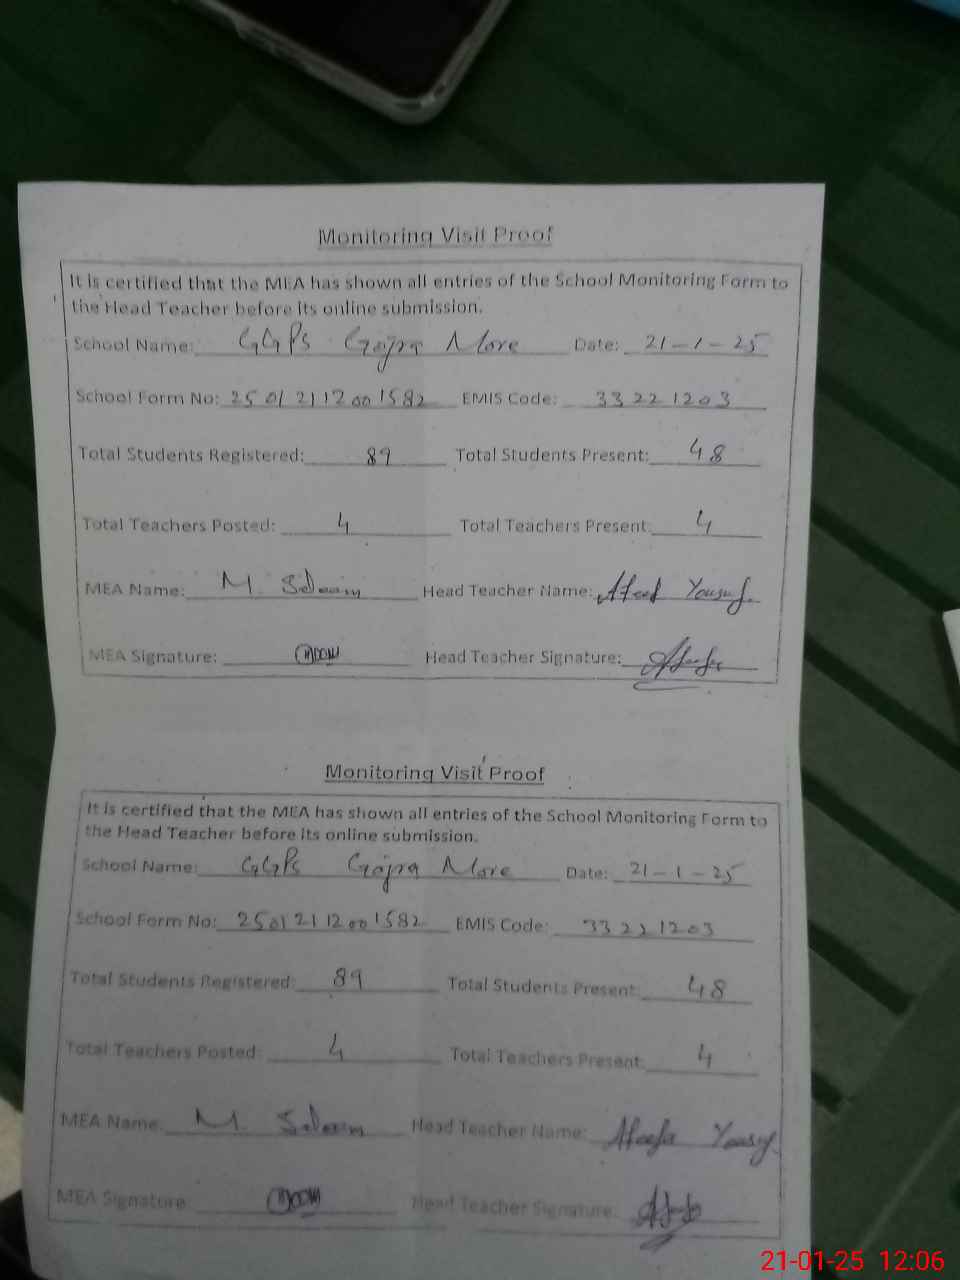 Monitoring Visit Proof
It is certified that the MEA has shown all entries of the School Monitoring Form to
the Head Teacher before its online submission.
School Name: GGPS Gojra More Date: 21-1-25
School Form No: 25012112001582 EMIS Code: 33221203
Total Students Registered: 89 Total Students Present: 48
Total Teachers Posted: 4 Total Teachers Present: 4
MEA Name: M. Saleem Head Teacher Name: Yousuf
MEA Signature: Head Teacher Signature:
Monitoring Visit Proof
It is certified that the MEA has shown all entries of the School Monitoring Form to
the Head Teacher before its online submission.
School Name: GGPS Gojra More Date: 21-1-25
School Form No: 25012112001582 EMIS Code: 33221203
Total Students Registered: 89 Total Students Present: 48
Total Teachers Posted: 4 Total Teachers Present: 4
MEA Name: M. Saleem Head Teacher Name: Ateefa Yousuf
MEA Signature: Head Teacher Signature:
21-01-25 12:06